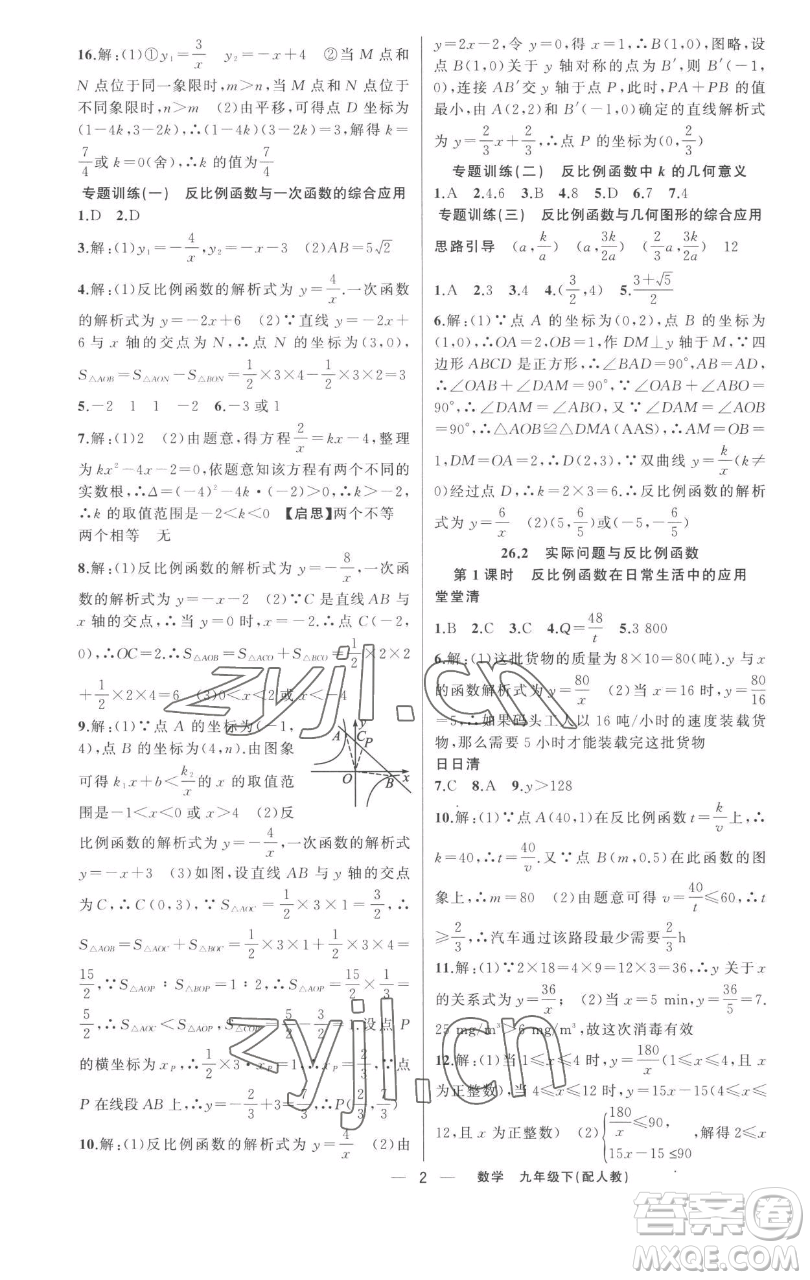 16.解:(1)①y₁=3/x y₂=-x+4 ②当 M 点和
N 点位于同一象限时,m>n,当 M 点和 N 点位于
不同象限时,n>m (2)由平移,可得点 D 坐标为
(1-4k,3-2k),∴(1-4k)(3-2k)=3,解得 k=
7/4或 k=0(舍),∴k 的值为7/4
专题训练(一) 反比例函数与一次函数的综合应用
1.D 2.D
3.解:(1)y₁=-4/x,y₂=-x-3 (2)AB=5√2
4.解:(1)反比例函数的解析式为 y=4/x.一次函数
的解析式为 y=-2x+6 (2)∵直线 y=-2x+
6 与 x 轴的交点为 N,∴点 N 的坐标为(3,0),
S△AOB=S△AON-S△BON=1/2×3×4-1/2×3×2=3
5.-2 1 1 -2 6.-3或1
7.解:(1)2 (2)由题意,得方程2/x=kx-4,整理
为 kx²-4x-2=0,依题意知该方程有两个不同的
实数根,∴Δ=(-4)²-4k·(-2)>0,∴k>-2,
∴k 的取值范围是-2<k<0 【启思】两个不等
两个相等 无
8.解:(1)反比例函数的解析式为 y=-8/x,一次函
数的解析式为 y=-x-2 (2)∵C 是直线 AB 与
x 轴的交点,∴当 y=0 时,x=-2.∴点 C(-2,
0),∴OC=2.∴S△AOB=S△ACO+S△BCO=1/2×2×2
+1/2×2×4=6 (3)0<x<2或x<-4
9.解:(1)∵点 A 的坐标为(-1,
4),点 B 的坐标为(4,n).由图象
可得 k₁x+b<k₂/x 的 x 的取值范
围是-1<x<0 或 x>4 (2)反
比例函数的解析式为 y=-4/x,一次函数的解析式为
y=-x+3 (3)如图,设直线 AB 与 y 轴的交点
为 C,∴C(0,3),∵S△AOC=1/2×3×1=3/2,∴
S△AOB=S△AOC+S△BOC=1/2×3×1+1/2×3×4=
15/2,∵S△AOP∶S△BOP=1∶2,∴S△AOP=15/2×1/3=
5/2,∴S△AOC<S△AOP,S△COP=5/2-3/2=1.设点 P
的横坐标为 xP,∴1/2×3·xP=1,∴xP=2/3,∵点
P 在线段 AB 上,∴y=-2/3+3=7/3,∴P(2/3,7/3)
10.解:(1)反比例函数的解析式为 y=4/x (2)由
A
y
C
P
O
B
x
y=2x-2,令 y=0,得 x=1,∴B(1,0),图略,设
点 B(1,0)关于 y 轴对称的点为 B′,则 B′(-1,
0),连接 AB′交 y 轴于点 P,此时,PA+PB 的值
最小,由 A(2,2)和 B′(-1,0)确定的直线解析式
为 y=2/3x+2/3,∴点 P 的坐标为(0,2/3)
专题训练(二) 反比例函数中 k 的几何意义
1.A 2.4.6 3.B 4.8 5.D 6.7 7.4
专题训练(三) 反比例函数与几何图形的综合应用
思路引导 (a,k/a) (a,3k/2a) (2/3a,3k/2a) 12
1.A 2.3 3.4 4.(3/2,4) 5.(3+√5)/2
6.解:(1)∵点 A 的坐标为(0,2),点 B 的坐标为
(1,0),∴OA=2,OB=1,作 DM⊥y 轴于 M,∵四
边形 ABCD 是正方形,∴∠BAD=90°,AB=AD,
∴∠OAB+∠DAM=90°,∵∠OAB+∠ABO=
90°,∴∠DAM=∠ABO,又∵∠DMA=∠AOB
=90°,∴△AOB≌△DMA(AAS),∴AM=OB=
1,DM=OA=2,∴D(2,3),∵双曲线 y=k/x(k≠
0)经过点 D,∴k=2×3=6,∴双曲线的函数解析
式为 y=6/x (2)(5,6/5)或(-5,-6/5)
26.2 实际问题与反比例函数
第 1 课时 反比例函数在日常生活中的应用
堂堂清
1.B 2.C 3.C 4.Q=48/t 5.3 800
6.解:(1)这批货物的质量为 8×10=80(吨).y 与 x
的函数解析式为 y=80/x (2)当 x=16 时,y=80/16
=5,∴如果码头工人以 16 吨/小时的速度装载货
物,那么需要 5 小时才能装载完这批货物
日日清
7.C 8.A 9.y>128
10.解:(1)∵点 A(40,1)在反比例函数 t=k/v上,∴
k=40,∴t=40/v.又∵点 B(m,0.5)在此函数的图
象上,∴m=80 (2)由题意可得 v=40/t≤60,∴t
≥2/3,∴汽车通过该路段最少需要2/3h
11.解:(1)∵2×18=4×9=12×3=36,∴y 关于 x
的关系式为 y=36/x; (2)当 x=5 min,y=36/5=7.
25 mg/m³>6 mg/m³,故这次消毒有效
12.解:(1)当 1≤x≤4 时,y=180/x(1≤x≤4,且 x
为正整数),当 4≤x≤12 时,y=15x-15(4≤x≤
12,且 x 为正整数) (2){180/x≤90, 15x-15≤90,解得 2≤x≤7,
— 2 — 数学 九年级下(配人教)
zyjl.cn
zyjl.cn
答案圈
MXQE.COM